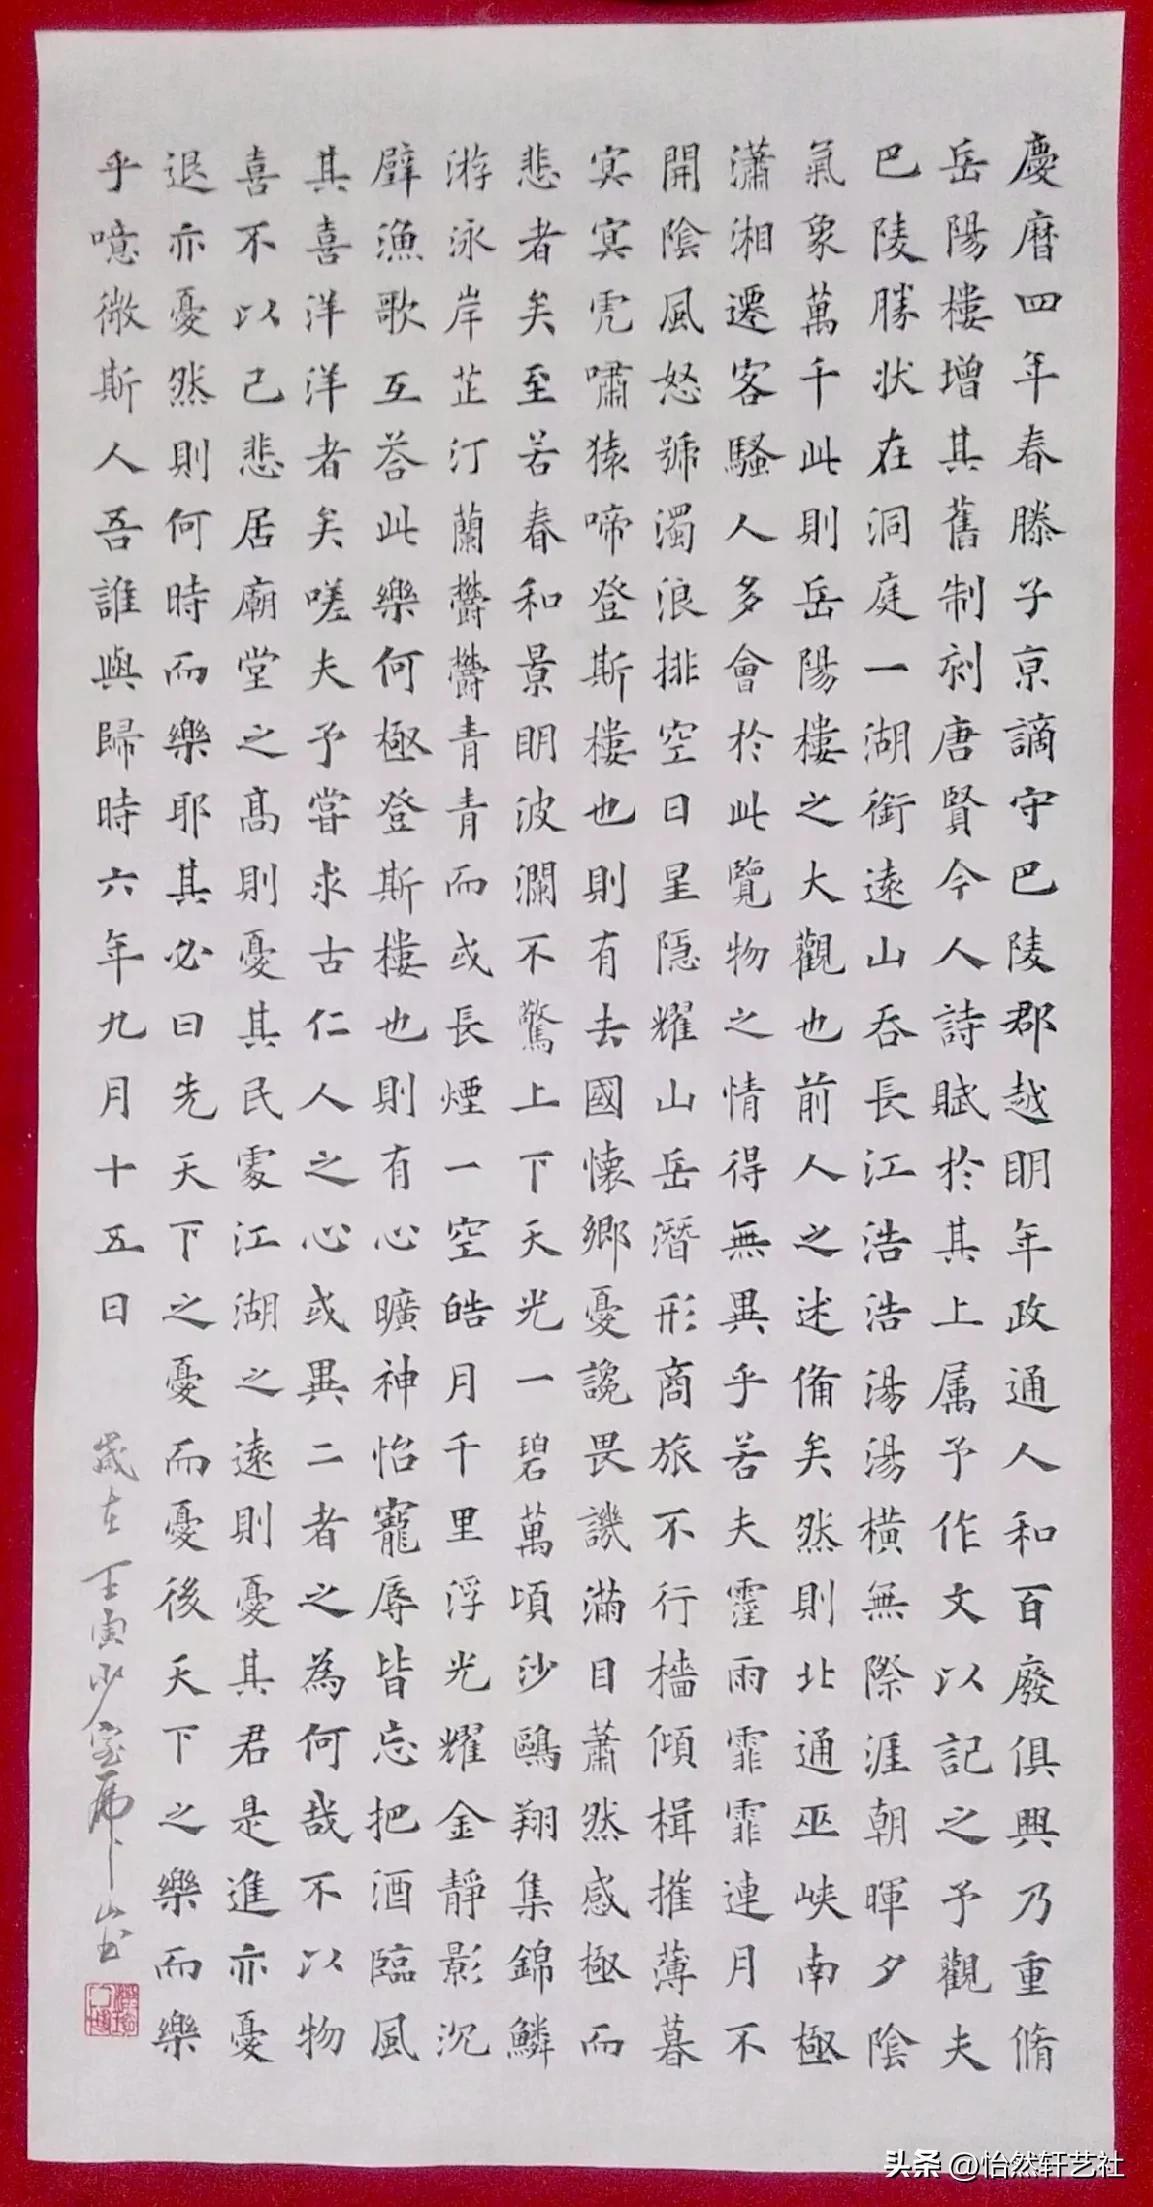 慶曆四年春滕子京謫守巴陵郡越明年政通人和百廢俱興乃重脩
岳陽樓增其舊制刻唐賢今人詩賦於其上属予作文以記之予觀夫
巴陵勝状在洞庭一湖銜遠山吞長江浩浩湯湯橫無際涯朝暉夕陰
氣象萬千此則岳陽樓之大觀也前人之述備矣然則北通巫峽南極
瀟湘遷客騷人多會於此覽物之情得無異乎若夫霪雨霏霏連月不
開陰風怒號濁浪排空日星隱耀山岳潛形商旅不行檣傾楫摧薄暮
冥冥虎嘯猿啼登斯樓也則有去國懷鄉憂讒畏譏滿目蕭然感極而
悲者矣至若春和景明波瀾不驚上下天光一碧萬頃沙鷗翔集錦鱗
游泳岸芷汀蘭鬱鬱青青而或長煙一空皓月千里浮光耀金靜影沉
璧漁歌互答此樂何極登斯樓也則有心曠神怡寵辱皆忘把酒臨風
其喜洋洋者矣嗟夫予嘗求古仁人之心或異二者之為何哉不以物
喜不以己悲居廟堂之高則憂其民處江湖之遠則憂其君是進亦憂
退亦憂然則何時而樂耶其必曰先天下之憂而憂後天下之樂而樂
乎噫微斯人吾誰與歸時六年九月十五日 歲在壬寅
头条 @怡然轩艺社